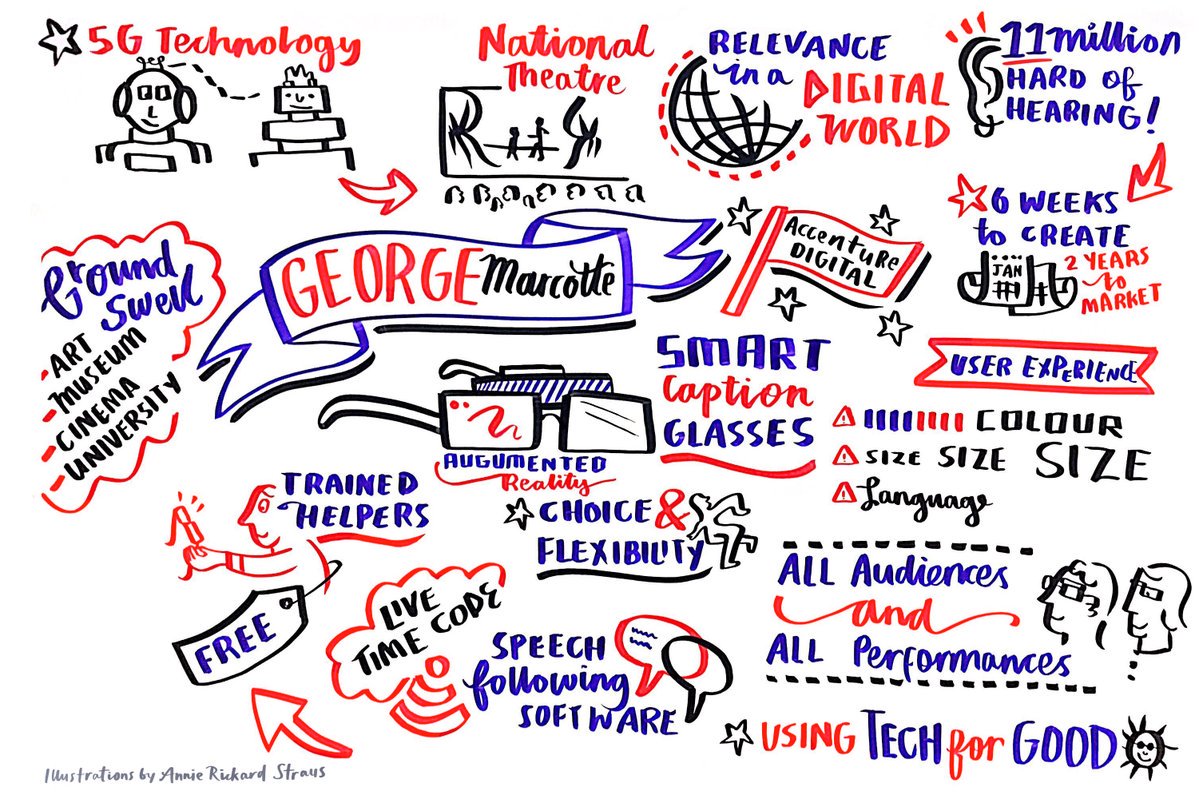 5G Technology
National
Theatre
RELEVANCE
in a
DIGITAL
WORLD
11 million
HARD OF
HEARING!
6 WEEKS
to CREATE
JAN
2 YEARS
to
MARKET
Ground
Swell
ART
MUSEUM
CINEMA
UNIVERSITY
GEORGE Marcotte
Accenture
DIGITAL
SMART
Caption
GLASSES
AUGUMENTED
Reality
USER EXPERIENCE
COLOUR
SIZE SIZE SIZE
Language
TRAINED
HELPERS
FREE
CHOICE &
FLEXIBILITY
LIVE
TIME CODE
SPEECH
following
SOFTWARE
ALL Audiences
and
ALL Performances
USING TECH for GOOD
Illustrations by Annie Rickard Straus